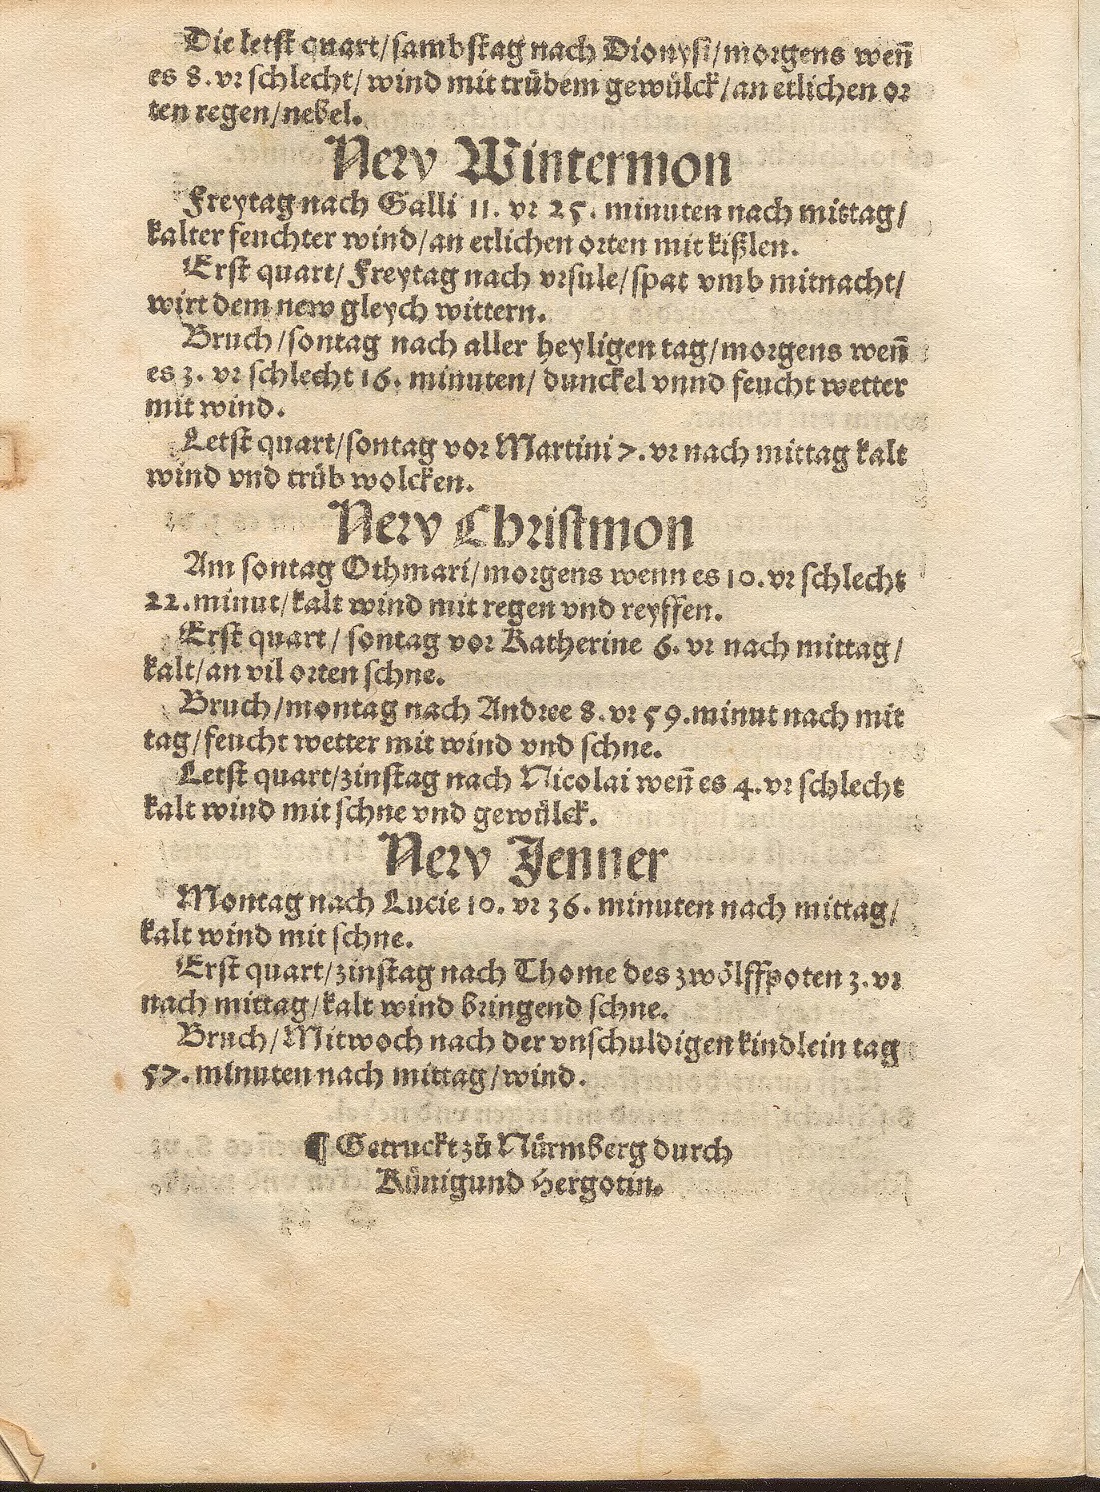 Die letſt quart/ſambſtag nach Dionyſi/morgens weñ
es 8. vr ſchlecht/wind mit trübem gewülck/an etlichen or
ten regen/nebel.
New Wintermon
Freytag nach Galli 11. vr 25. minuten nach mittag/
kalter feuchter wind/an etlichen orten mit kißlen.
Erſt quart/Freytag nach vrſule/ſpat vmb mitnacht/
wirt dem new gleych wittern.
Bruch/ſontag nach aller heyligen tag/morgens weñ
es 3. vr ſchlecht 16. minuten/dunckel vnnd feucht wetter
mit wind.
Letſt quart/ſontag vor Martini 7. vr nach mittag kalt
wind vnd trüb wolcken.
New Chriſtmon
Am ſontag Othmari/morgens wenn es 10. vr ſchlecht
22. minut/kalt wind mit regen vnd reyffen.
Erſt quart/ſontag vor Katherine 6. vr nach mittag/
kalt/an vil orten ſchne.
Bruch/montag nach Andree 8. vr 59. minut nach mit
tag/feucht wetter mit wind vnd ſchne.
Letſt quart/zinſtag nach Nicolai weñ es 4. vr ſchlecht
kalt wind mit ſchne vnd gewülck.
New Jenner
Montag nach Lucie 10. vr 36. minuten nach mittag/
kalt wind mit ſchne.
Erſt quart/zinſtag nach Thome des zwölffpoten 3. vr
nach mittag/kalt wind bringend ſchne.
Bruch/Mitwoch nach der vnſchuldigen kindlein tag
57. minuten nach mittag/wind.
¶ Getruckt zů Nürmberg durch
Künigund Hergotin.